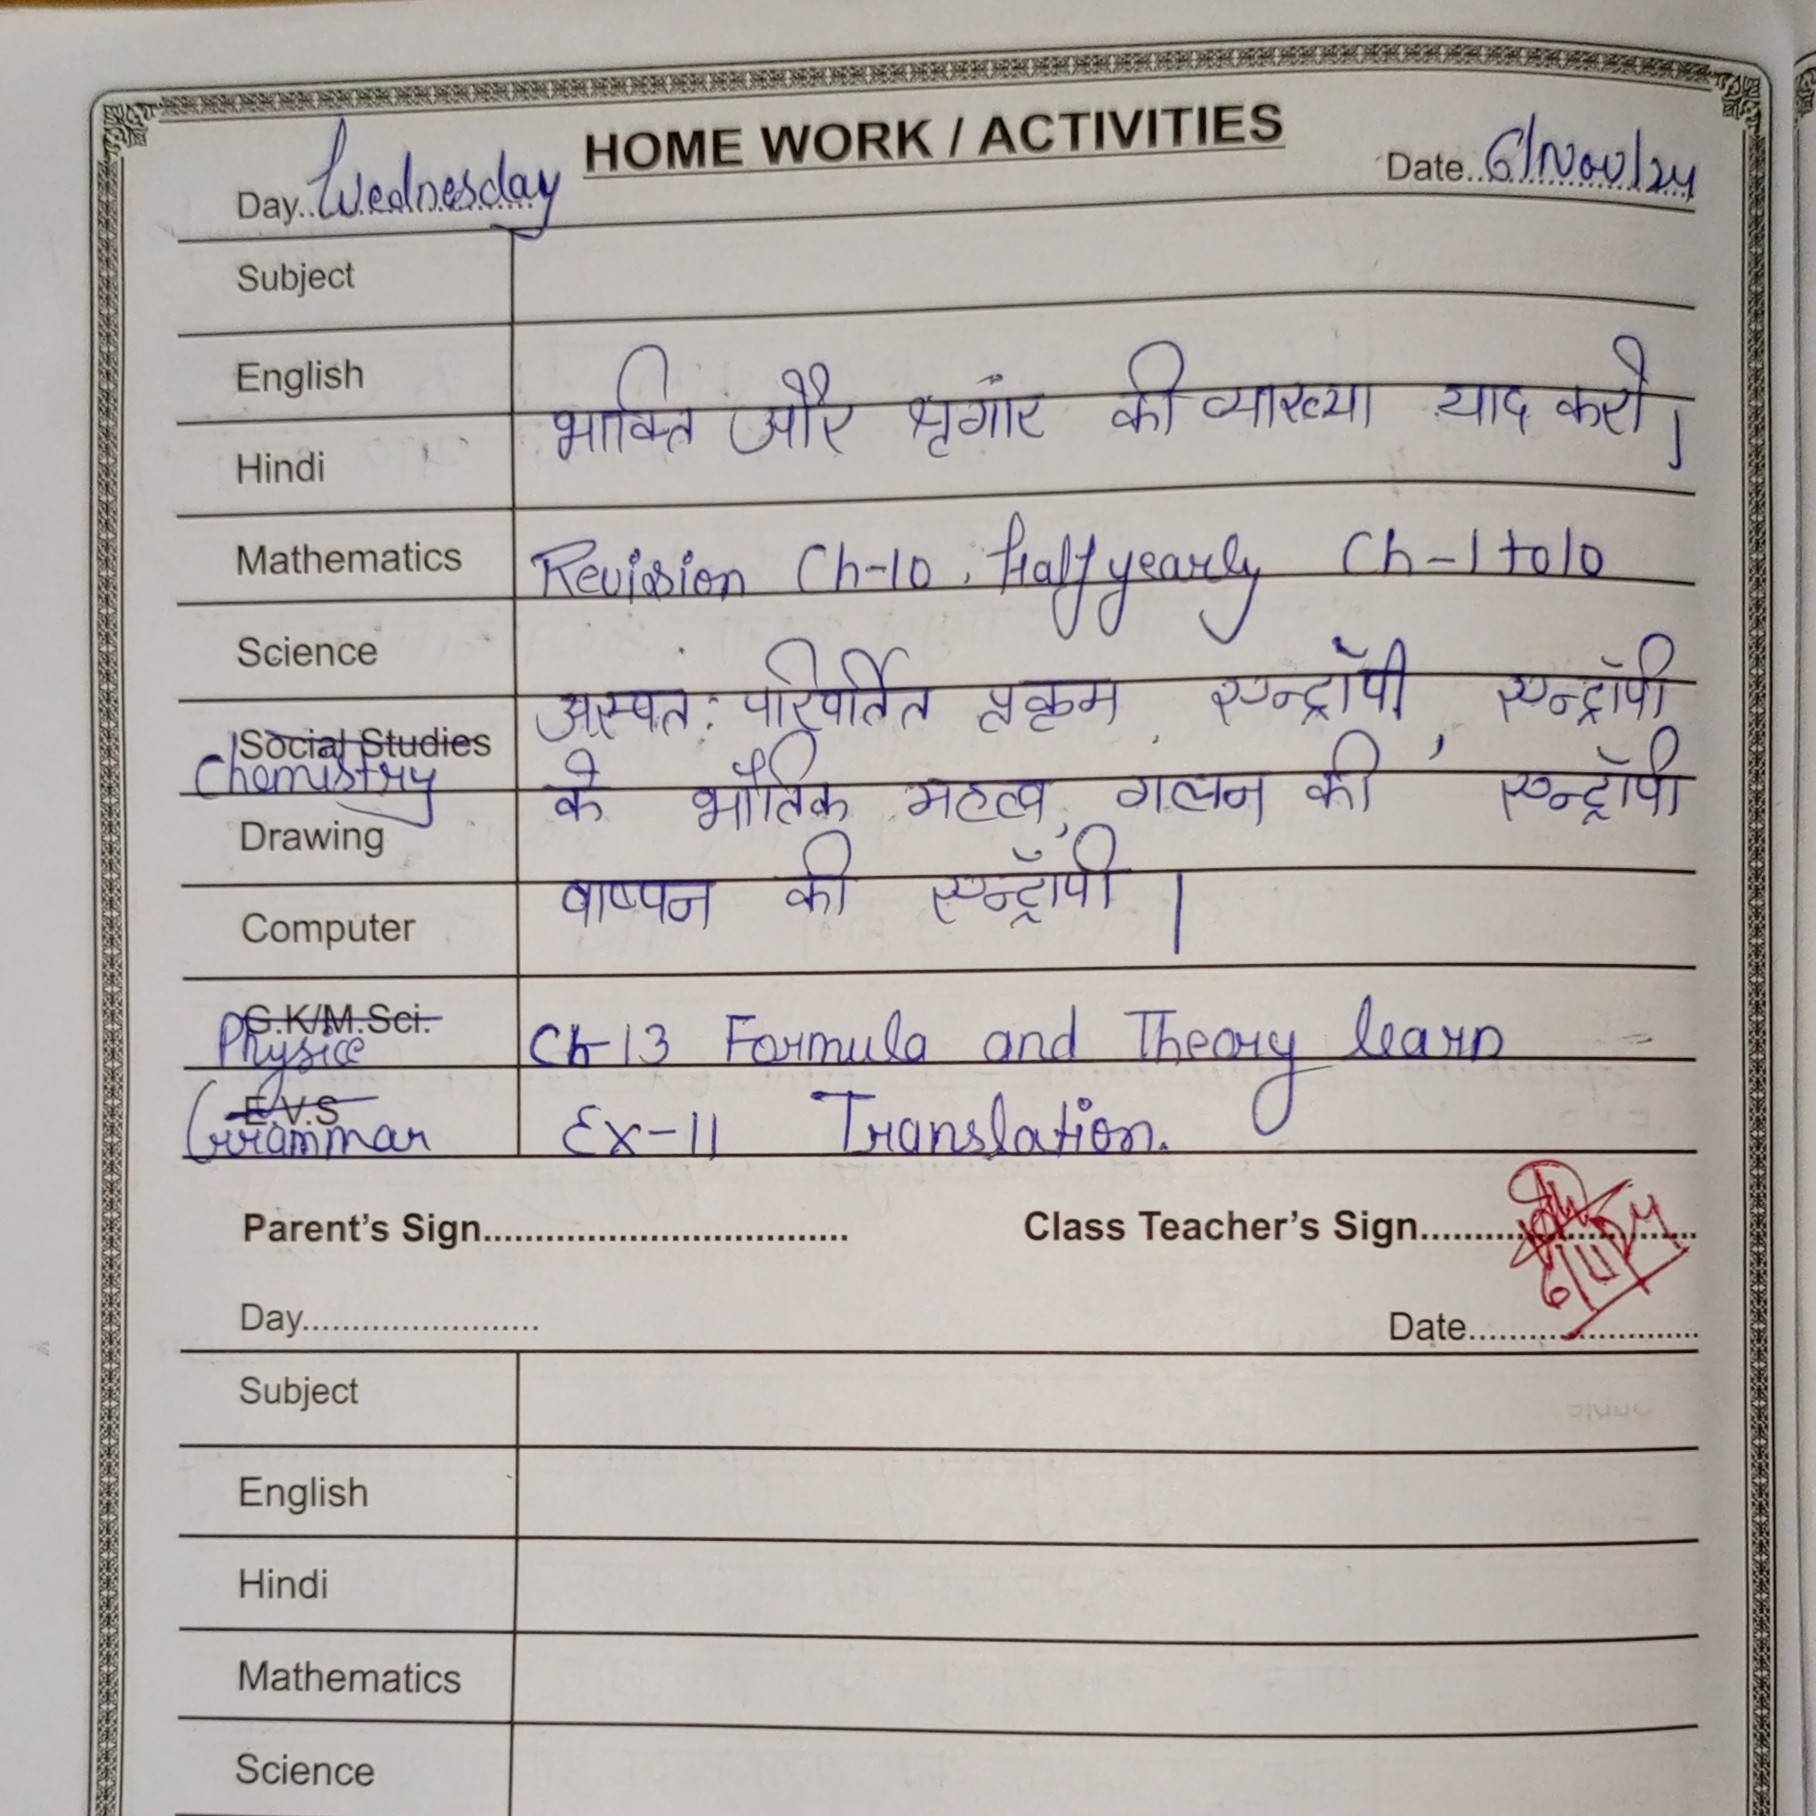 HOME WORK / ACTIVITIES
Day..Wednesday Date..6/Nov/24
Subject
English
Hindi भाक्ति और श्रृगांर की व्याख्या याद करो।
Mathematics Revision Ch-10, Half yearly Ch-1 to 10
Science
अस्वत: परिवर्तित प्रक्रम, एन्ट्रॉपी, एन्ट्रॉपी
Social Studies
Chemistry के भौतिक महत्व, गलन की एन्ट्रॉपी
Drawing
वाष्पन की एन्ट्रॉपी।
Computer
G.K/M.Sci.
Physics Ch-13 Formula and Theory learn
E.V.S
Grammar Ex-11 Translation.
Parent's Sign.................................... Class Teacher's Sign............................
6/11/24
Day........................ Date.......................
Subject
English
Hindi
Mathematics
Science